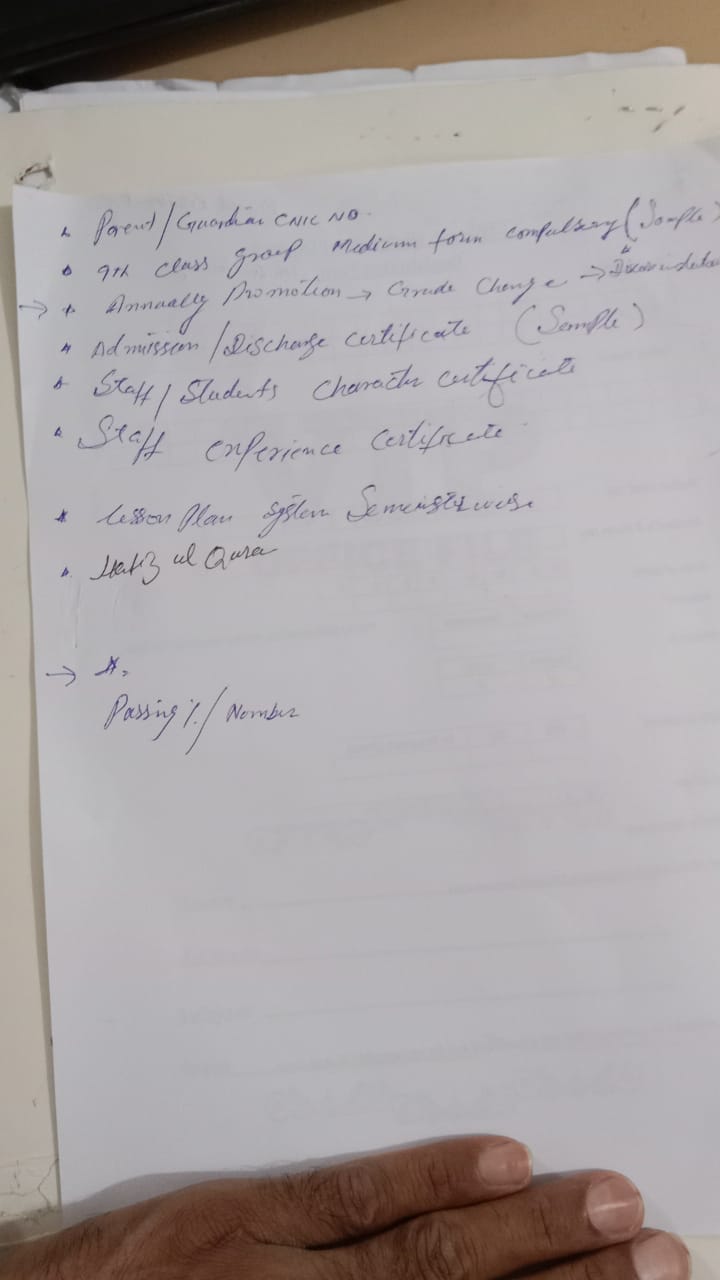 * Parent/Guardian CNIC NO.
* 9th class group Medium form compulsory (Sample)
→ * Annually Promotion → Grade Change →
* Admission/Discharge certificate (Sample)
* Staff/Students character certificate
* Staff experience certificate
* Lesson Plan system
* Hafiz ul Quran
→ *.
Passing %/Number